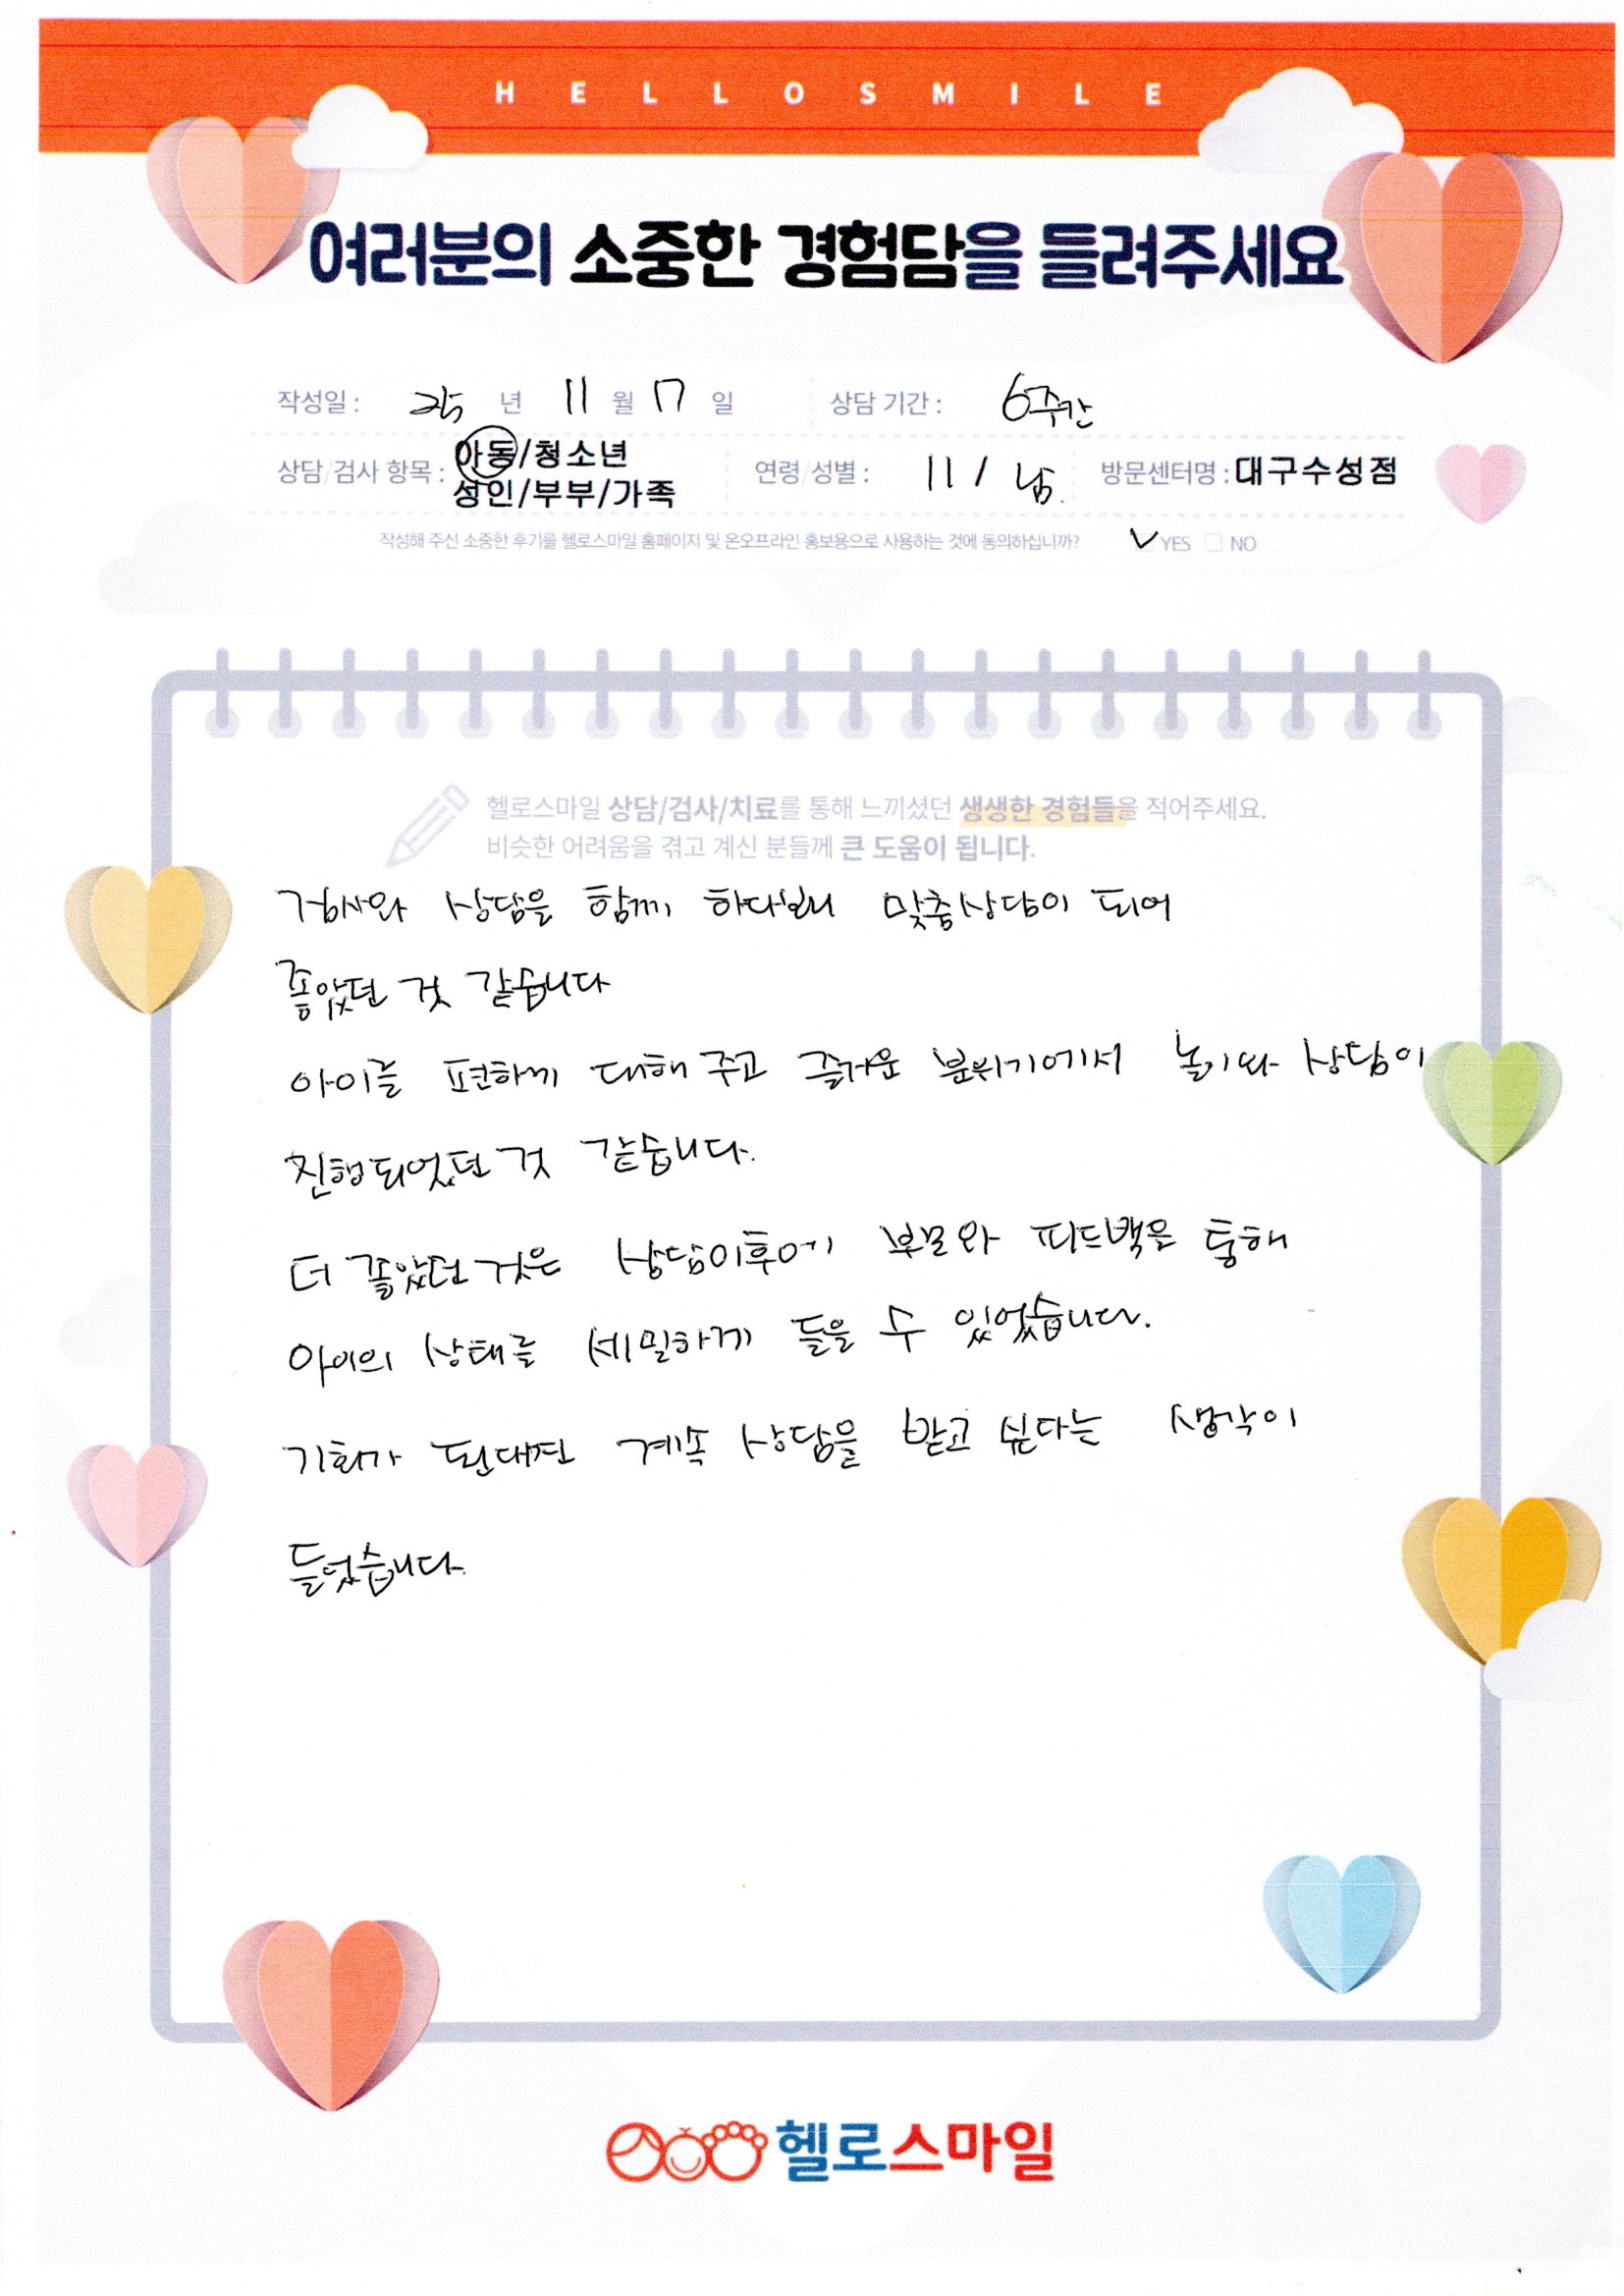 HELLOSMILE
여러분의 소중한 경험담을 들려주세요
작성일 : 25 년 11 월 17 일 상담 기간 : 6주간
상담/검사 항목 : 아동/청소년 성인/부부/가족 연령/성별 : 11 / 남. 방문센터명 : 대구수성점
작성해 주신 소중한 후기를 헬로스마일 홈페이지 및 온오프라인 홍보용으로 사용하는 것에 동의하십니까? YES NO
헬로스마일 상담/검사/치료를 통해 느끼셨던 생생한 경험들을 적어주세요.
비슷한 어려움을 겪고 계신 분들께 큰 도움이 됩니다.
검사와 상담을 함께 하다보니 맞춤상담이 되어
좋았던 것 같습니다
아이를 편하게 대해 주고 즐거운 분위기에서 놀이와 상담이
진행되었던 것 같습니다.
더 좋았던 것은 상담이후에 부모와 피드백을 통해
아이의 상태를 세밀하게 들을 수 있었습니다.
기회가 된다면 계속 상담을 받고 싶다는 생각이
들었습니다.
헬로스마일